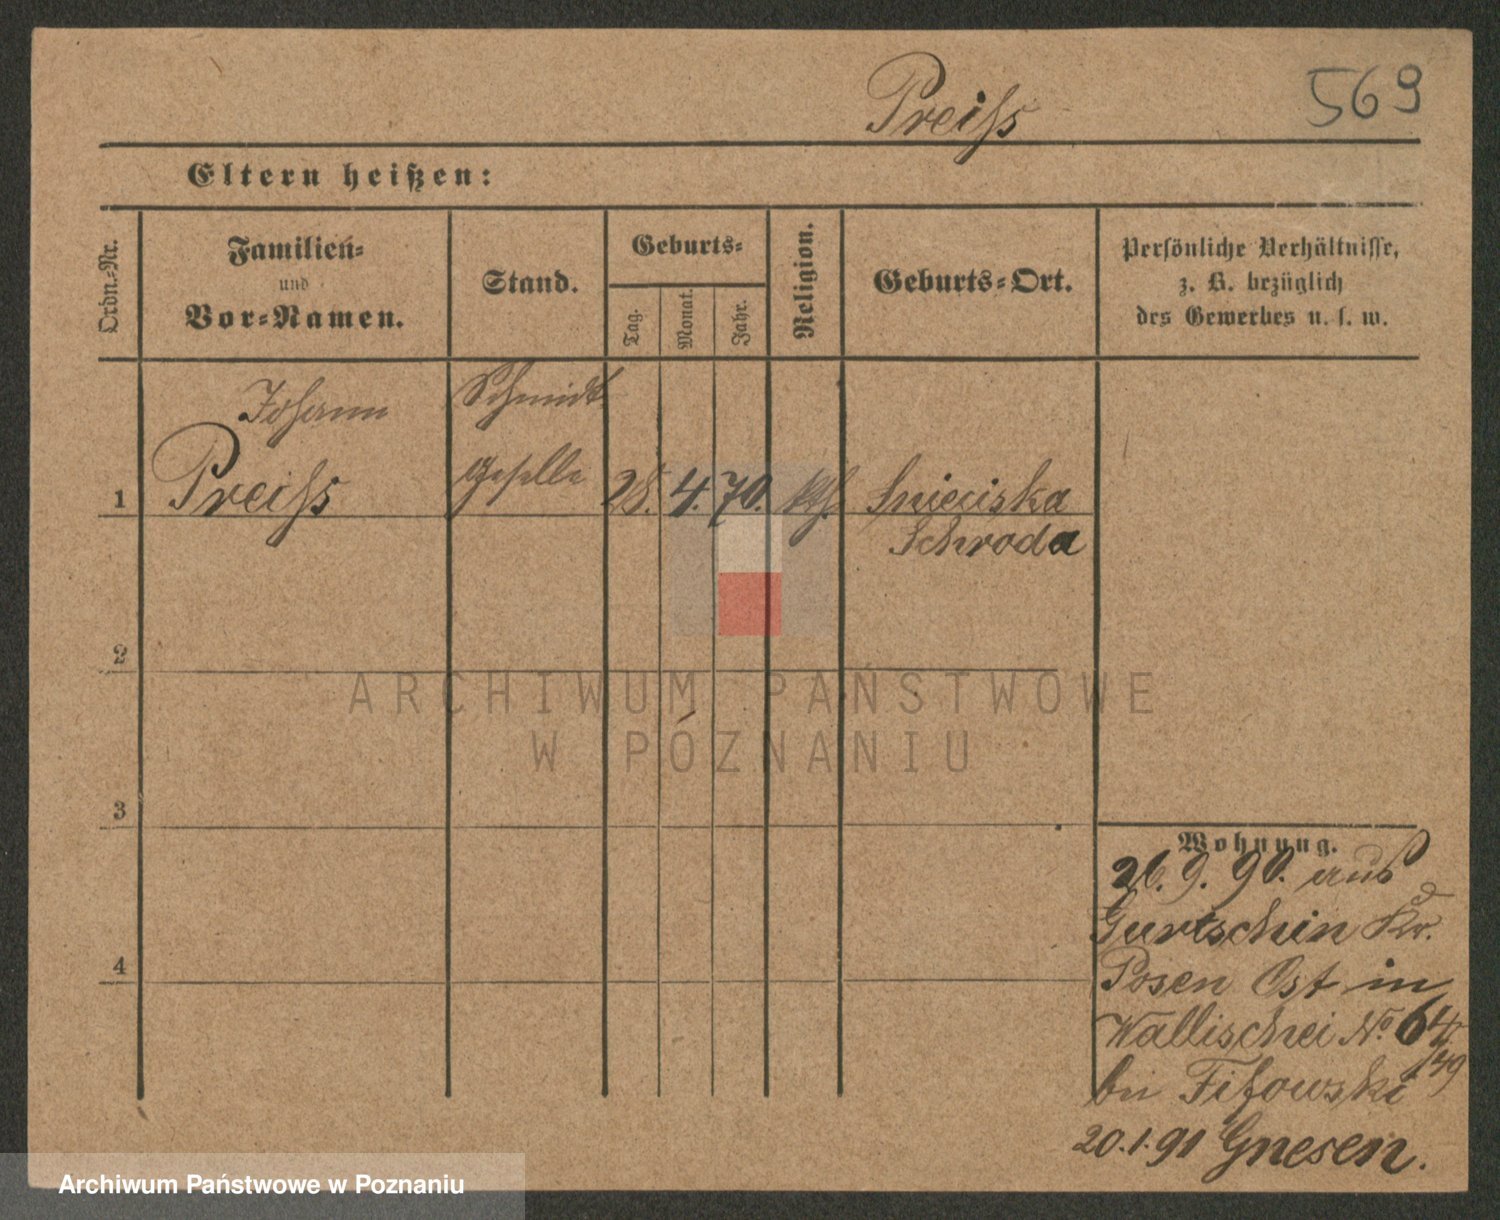 Preiſs
569
Eltern heißen:
Ordn.-Nr.
Familien-
und
Vor-Namen.
Stand.
Geburts-
Tag.
Monat.
Jahr.
Religion.
Geburts-Ort.
Persönliche Verhältnisse,
z. B. bezüglich
des Gewerbes u. s. w.
Johann
Preiſs
Schmidt
geselle
1
28. 4. 70. kth.
Schroda
2
3
4
ARCHIWUM PAŃSTWOWE
W POZNANIU
Wohnung.
26. 9. 90. aus
Gurtschin Kr.
Posen Ost in
Wallischei No. 64/49
bei
20.1.91 Gnesen.
Archiwum Państwowe w Poznaniu